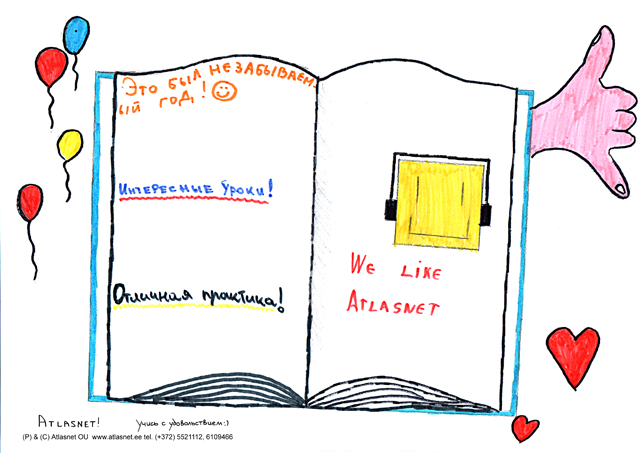 Это был незабываем-
ый год! ☺
Интересные уроки!
Отличная практика!
We like
Atlasnet
Atlasnet! учись с удовольствием:)
(P) & (C) Atlasnet OU www.atlasnet.ee tel. (+372) 5521112, 6109466